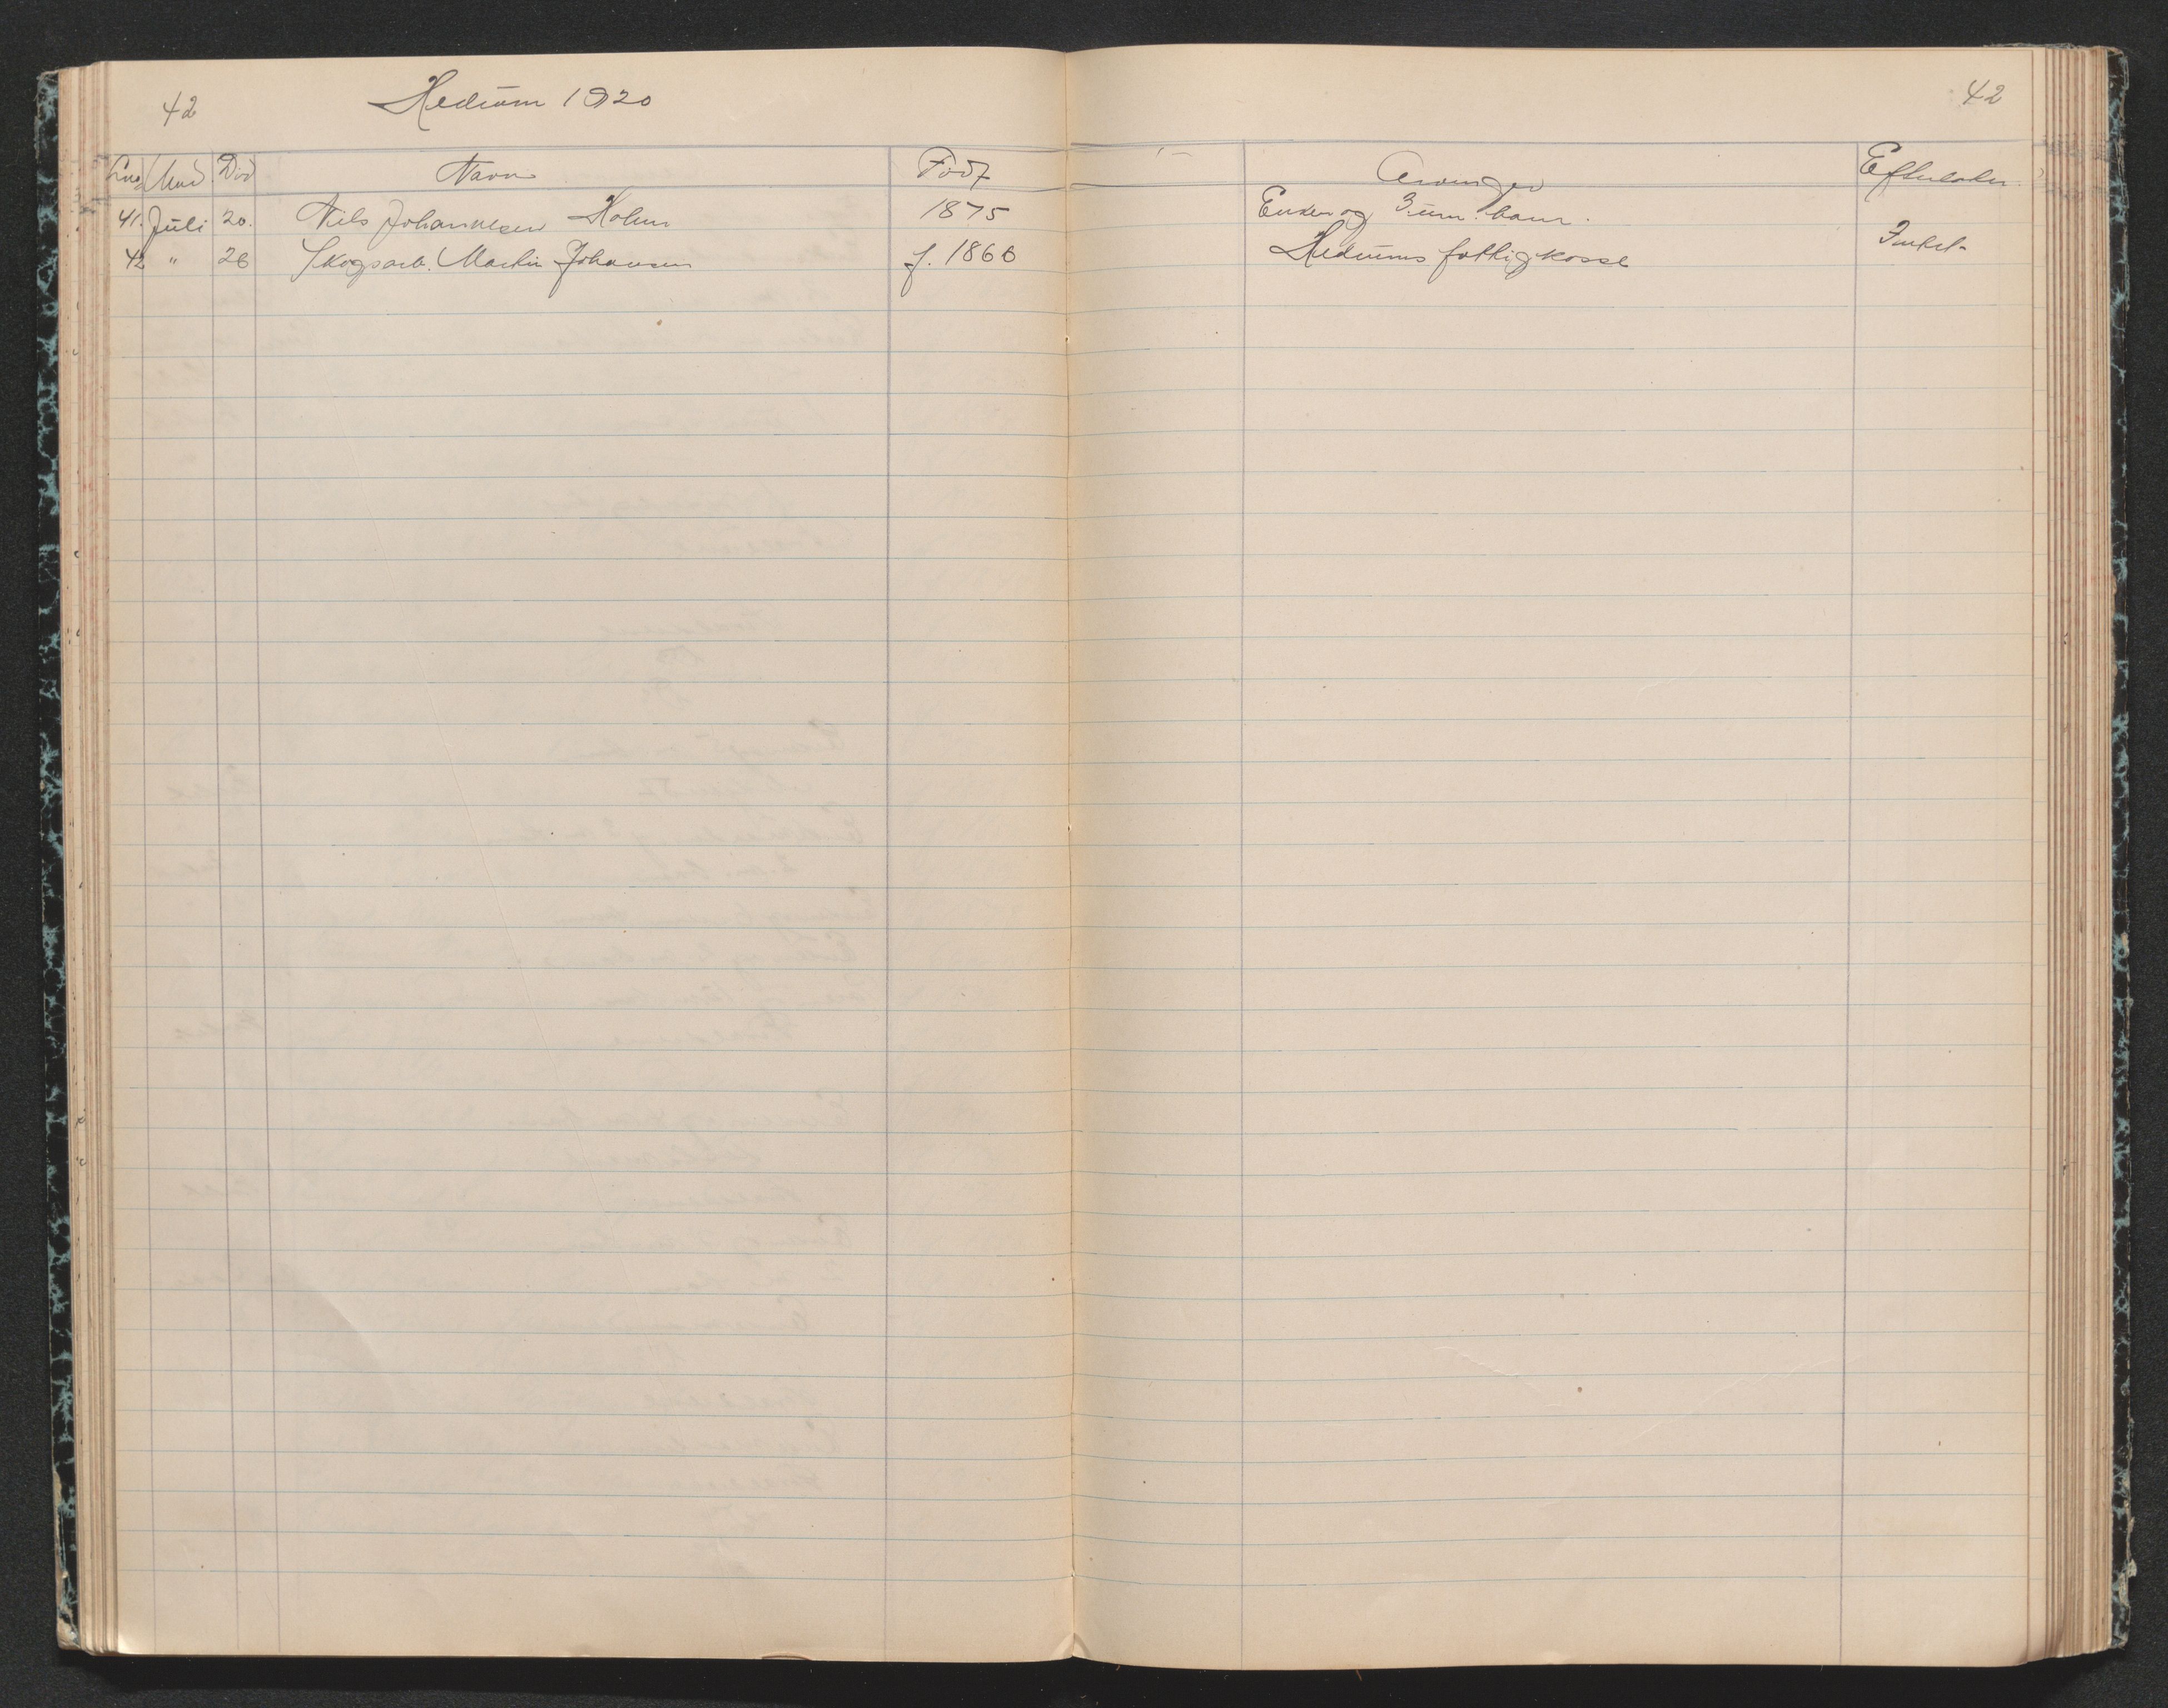 42 Hedrum 1920 42
Lno Mnd. Död Navn Född Arvinger Efterlader.
41. Juli 20. Nils Johannesen Holm 1875 Enken og 3 um. barn.
42 " 26 Skogsarb. Martin Johansen f. 1866 Hedrums fattigkasse Intet